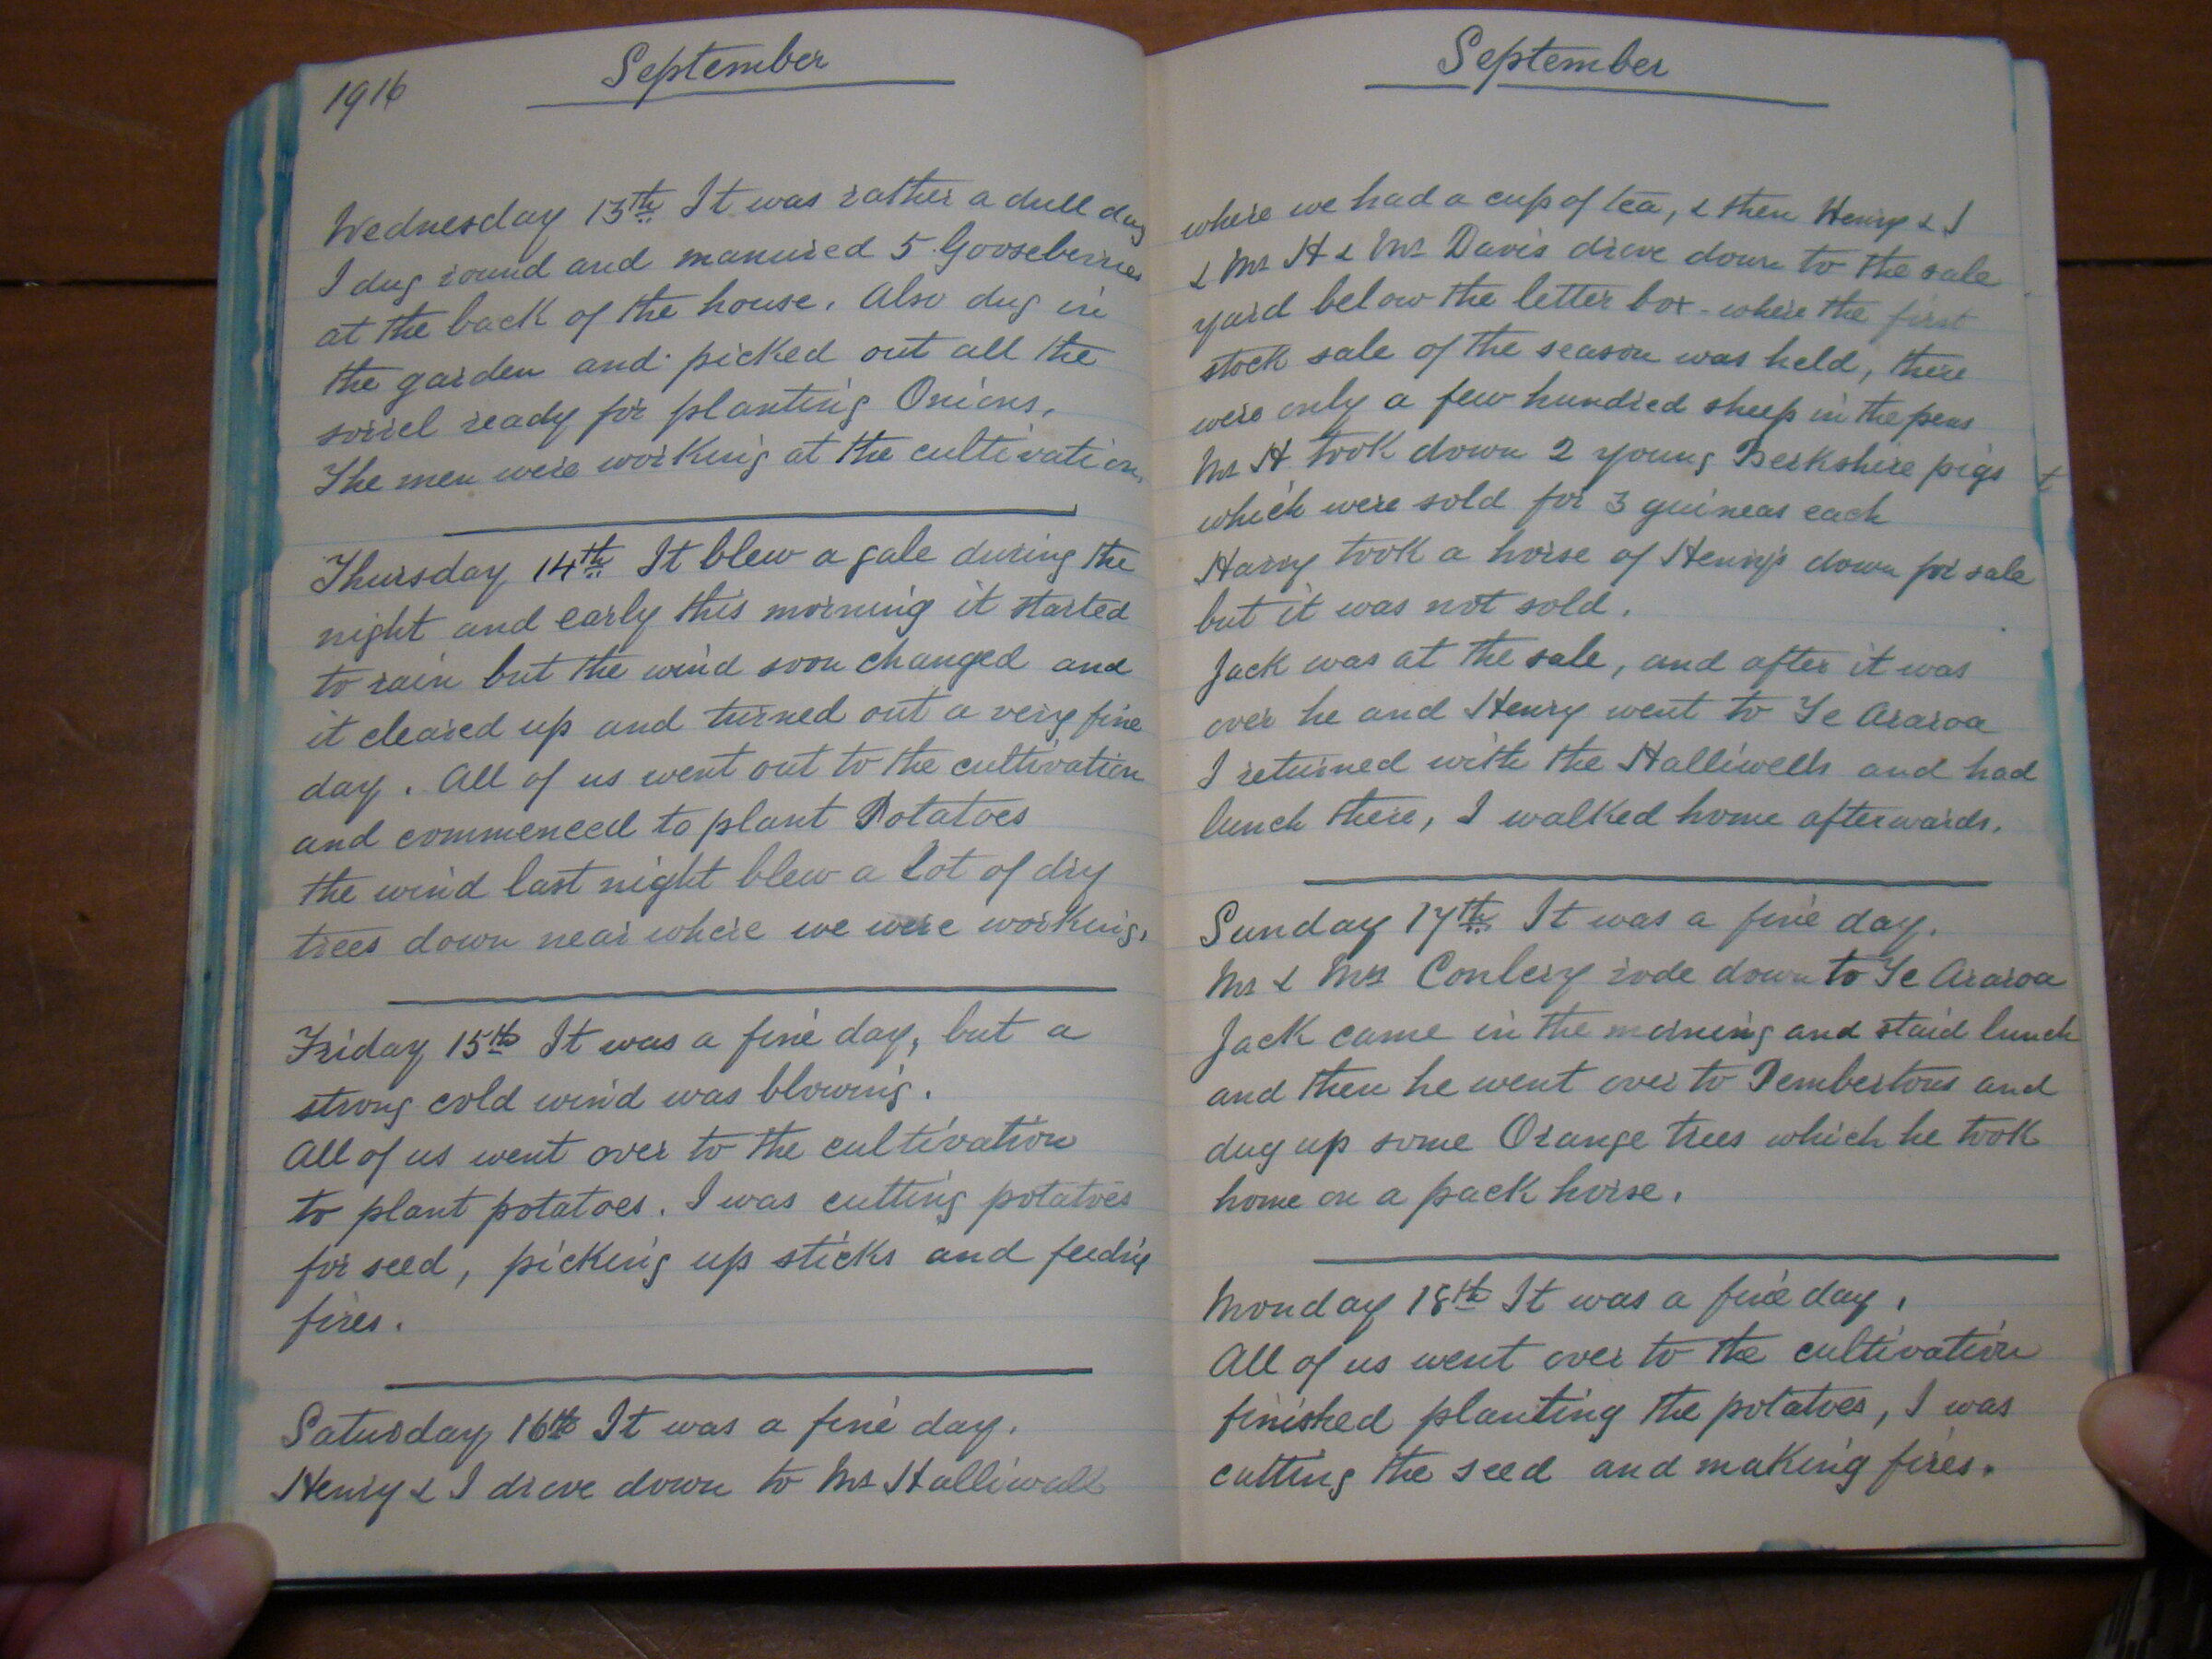 1916
September
Wednesday 13th It was rather a dull day
I dug round and manured 5 Gooseberries
at the back of the house. Also dug in
the garden and picked out all the
sorrel ready for planting Onions.
The men were working at the cultivation.
Thursday 14th It blew a gale during the
night and early this morning it started
to rain but the wind soon changed and
it cleared up and turned out a very fine
day. All of us went out to the cultivation
and commenced to plant Potatoes
the wind last night blew a lot of dry
trees down near where we were working.
Friday 15th It was a fine day, but a
strong cold wind was blowing.
All of us went over to the cultivation
to plant potatoes. I was cutting potatoes
for seed, picking up sticks and feeding
fires.
Saturday 16th It was a fine day.
Henry & I drove down to Mr Halliwall
September
where we had a cup of tea, & then Henry & I
& Mr H & Mr Davis drove down to the sale
yard below the letter box - where the first
stock sale of the season was held, there
were only a few hundred sheep in the pens
Mr H took down 2 young Berkshire pigs +
which were sold for 3 guineas each
Harry took a horse of Henry's down for sale
but it was not sold.
Jack was at the sale, and after it was
over he and Henry went to Te Araroa
I returned with the Halliwells and had
lunch there, I walked home afterwards.
Sunday 17th It was a fine day.
Mr & Mrs Conlery rode down to Te Araroa
Jack came in the morning and staid lunch
and then he went over to Pembertons and
dug up some Orange trees which he took
home on a pack horse.
Monday 18th It was a fine day.
All of us went over to the cultivation
finished planting the potatoes, I was
cutting the seed and making fires.